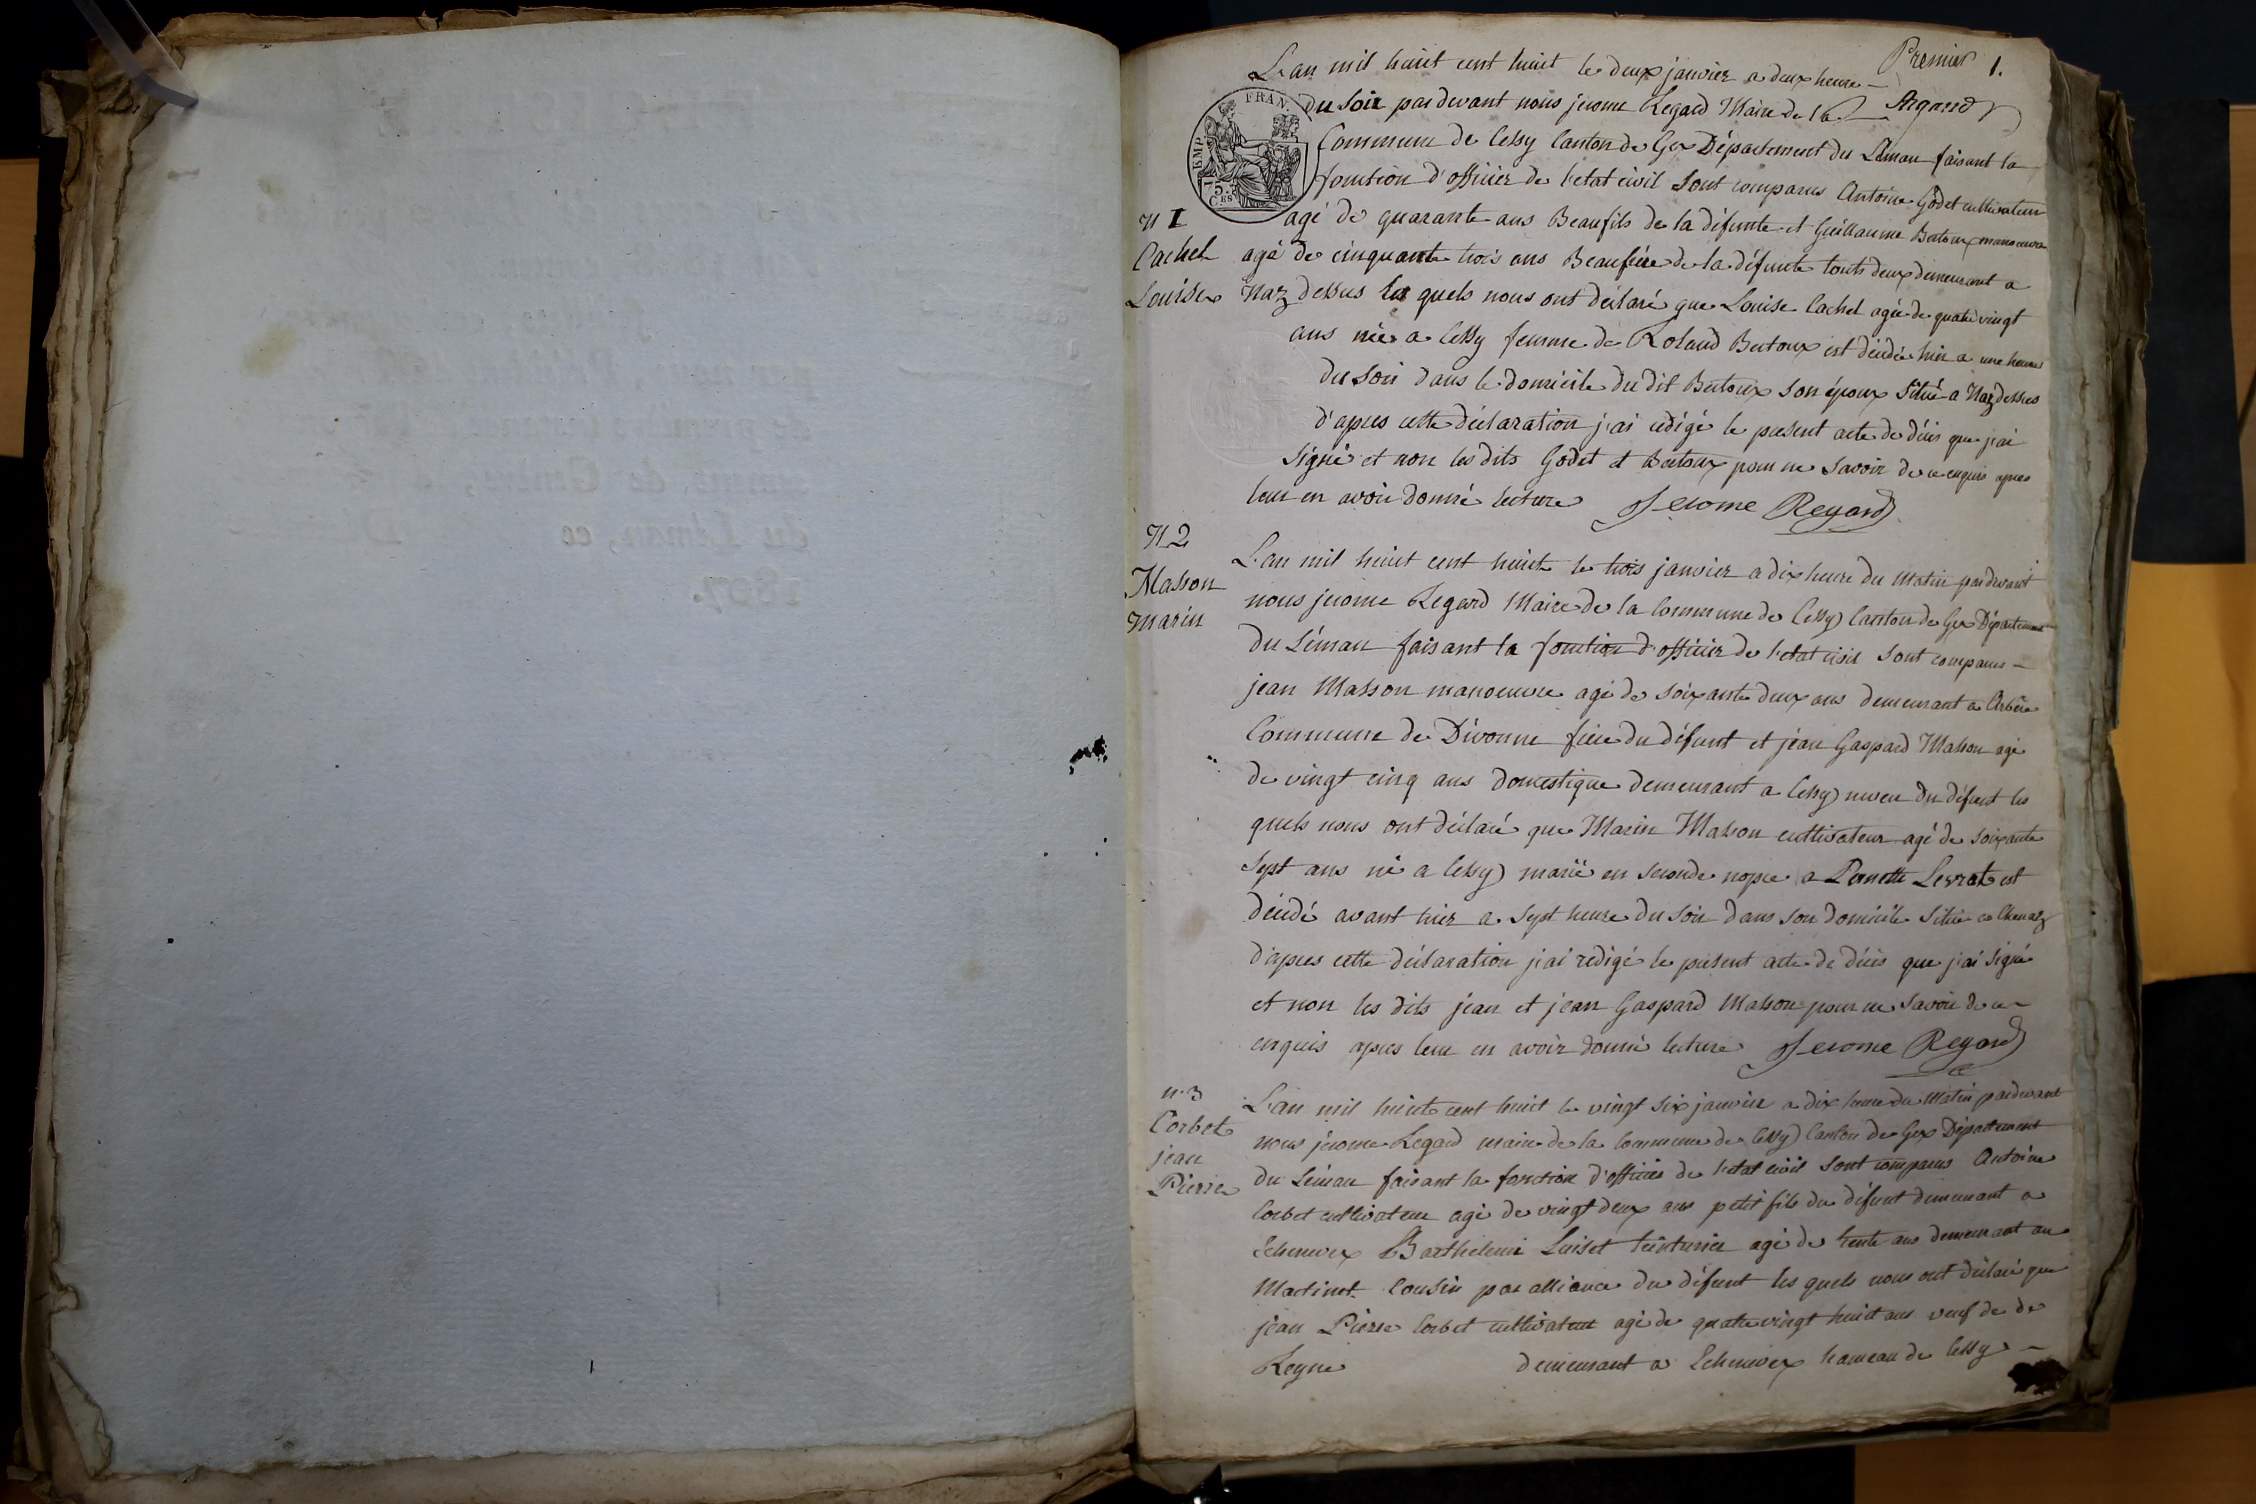 Premier 1.
L'an mil huit cent huit le deux janvier a deux heure
du soir par devant nous jerome Regard Maire de la
Commune de Cessy Canton de Gex Département du Léman faisant la
fonction d'officier de l'etat civil sont comparus Antoine Godet cultivateur
FRAN.
EMP.
75.
C.ES
N 1
Cachet
Louise
agé de quarante ans Beaufils de la défunte et Guillaume Bertoux manoeuvre
agé de cinquante trois ans Beaufrère de la défunte touts deux demeurant a
Naz dessus les quels nous ont déclaré que Louise Cachet agée de quatre vingt
ans née a Cessy femme de Roland Bertoux est décédée hier a une heure
du soir dans le domicile du dit Bertoux son époux situé a Naz dessus
d'apres cette déclaration j'ai rédigé le present acte de décès que j'ai
signé et non les dits Godet et Bertoux pour ne savoir de ce enquis apres
leur en avoir donné lecture Jerome Regard
N 2
Masson
Marin
L'an mil huit cent huit le trois janvier a dix heure du matin par devant
nous jerome Regard Maire de la Commune de Cessy Canton de Gex Département
du Léman faisant la fonction d'officier de l'etat civil sont comparus
jean Masson manoeuvre agé de soixante deux ans demeurant a Arbère
Commune de Divonne frère du défunt et jean Gaspard Masson agé
de vingt cinq ans domestique demeurant a Cessy neveu du défunt les
quels nous ont déclaré que Marin Masson cultivateur agé de soixante
sept ans né a Cessy marié en seconde nopce a Pernette Levrat est
décédé avant hier a sept heure du soir dans son domicile situé a Chenaz
d'apres cette déclaration j'ai redigé le present acte de décès que j'ai signé
et non les dits jean et jean Gaspard Masson pour ne savoir de ce
enquis apres leur en avoir donné lecture Jerome Regard
n. 3
Corbet
jean
Pierre
L'an mil huit cent huit le vingt six janvier a dix heure du matin par devant
nous jerome Regard maire de la Commune de Cessy Canton de Gex Département
du Léman faisant la fonction d'officier de l'etat civil sont comparus Antoine
Corbet cultivateur agé de vingt deux ans petit fils du défunt demeurant a
Echenevex Barthelemi Luiset teinturier agé de trente ans demeurant au
Martinet Cousin par alliance du défunt les quels nous ont déclaré que
jean Pierre Corbet cultivateur agé de quatre vingt huit ans veuf de de
Reyne demeurant a Echenevex hameau de Cessy